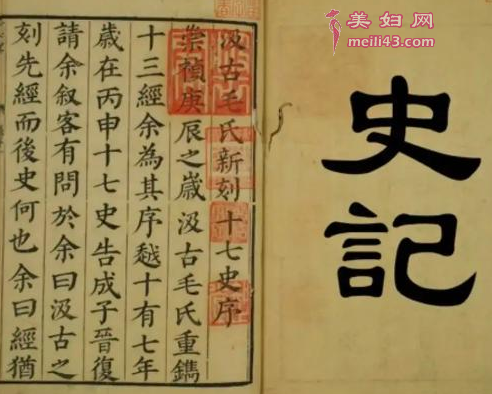 美妇网
meili43.com
史記
汲古毛氏新刻十七史序
崇禎庚辰之歲汲古毛氏重鐫
十三經余為其序越十有七年
歲在丙申十七史告成子晉復
請余叙客有問於余曰汲古之
刻先經而後史何也余曰經猶